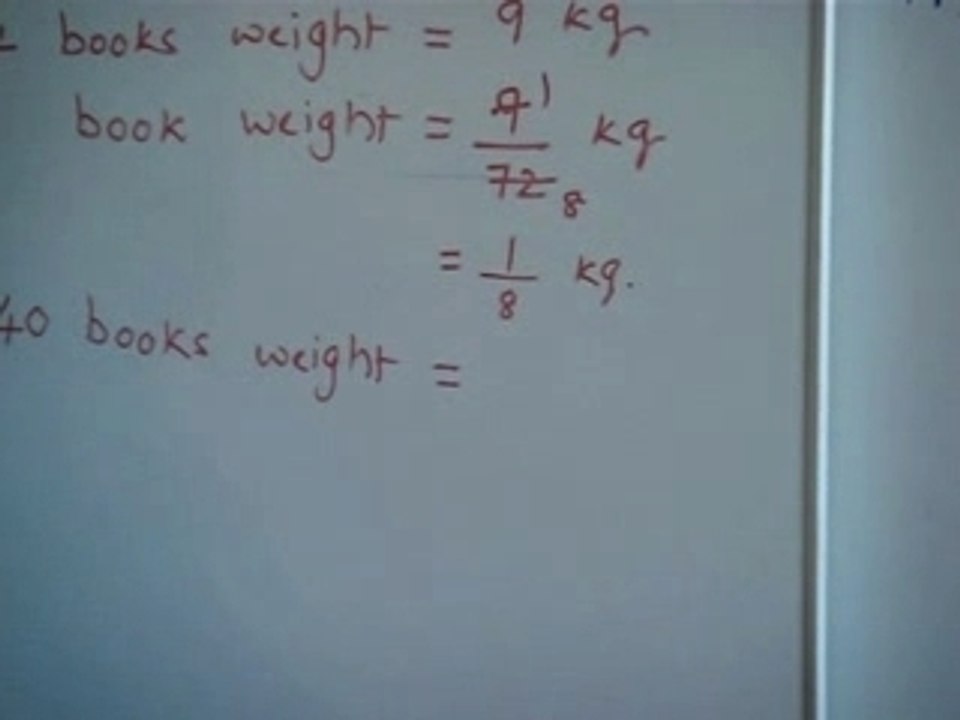 books weight = 9 kg
book weight = 9 1 kg
72 8
= 1 kg.
8
40 books weight =